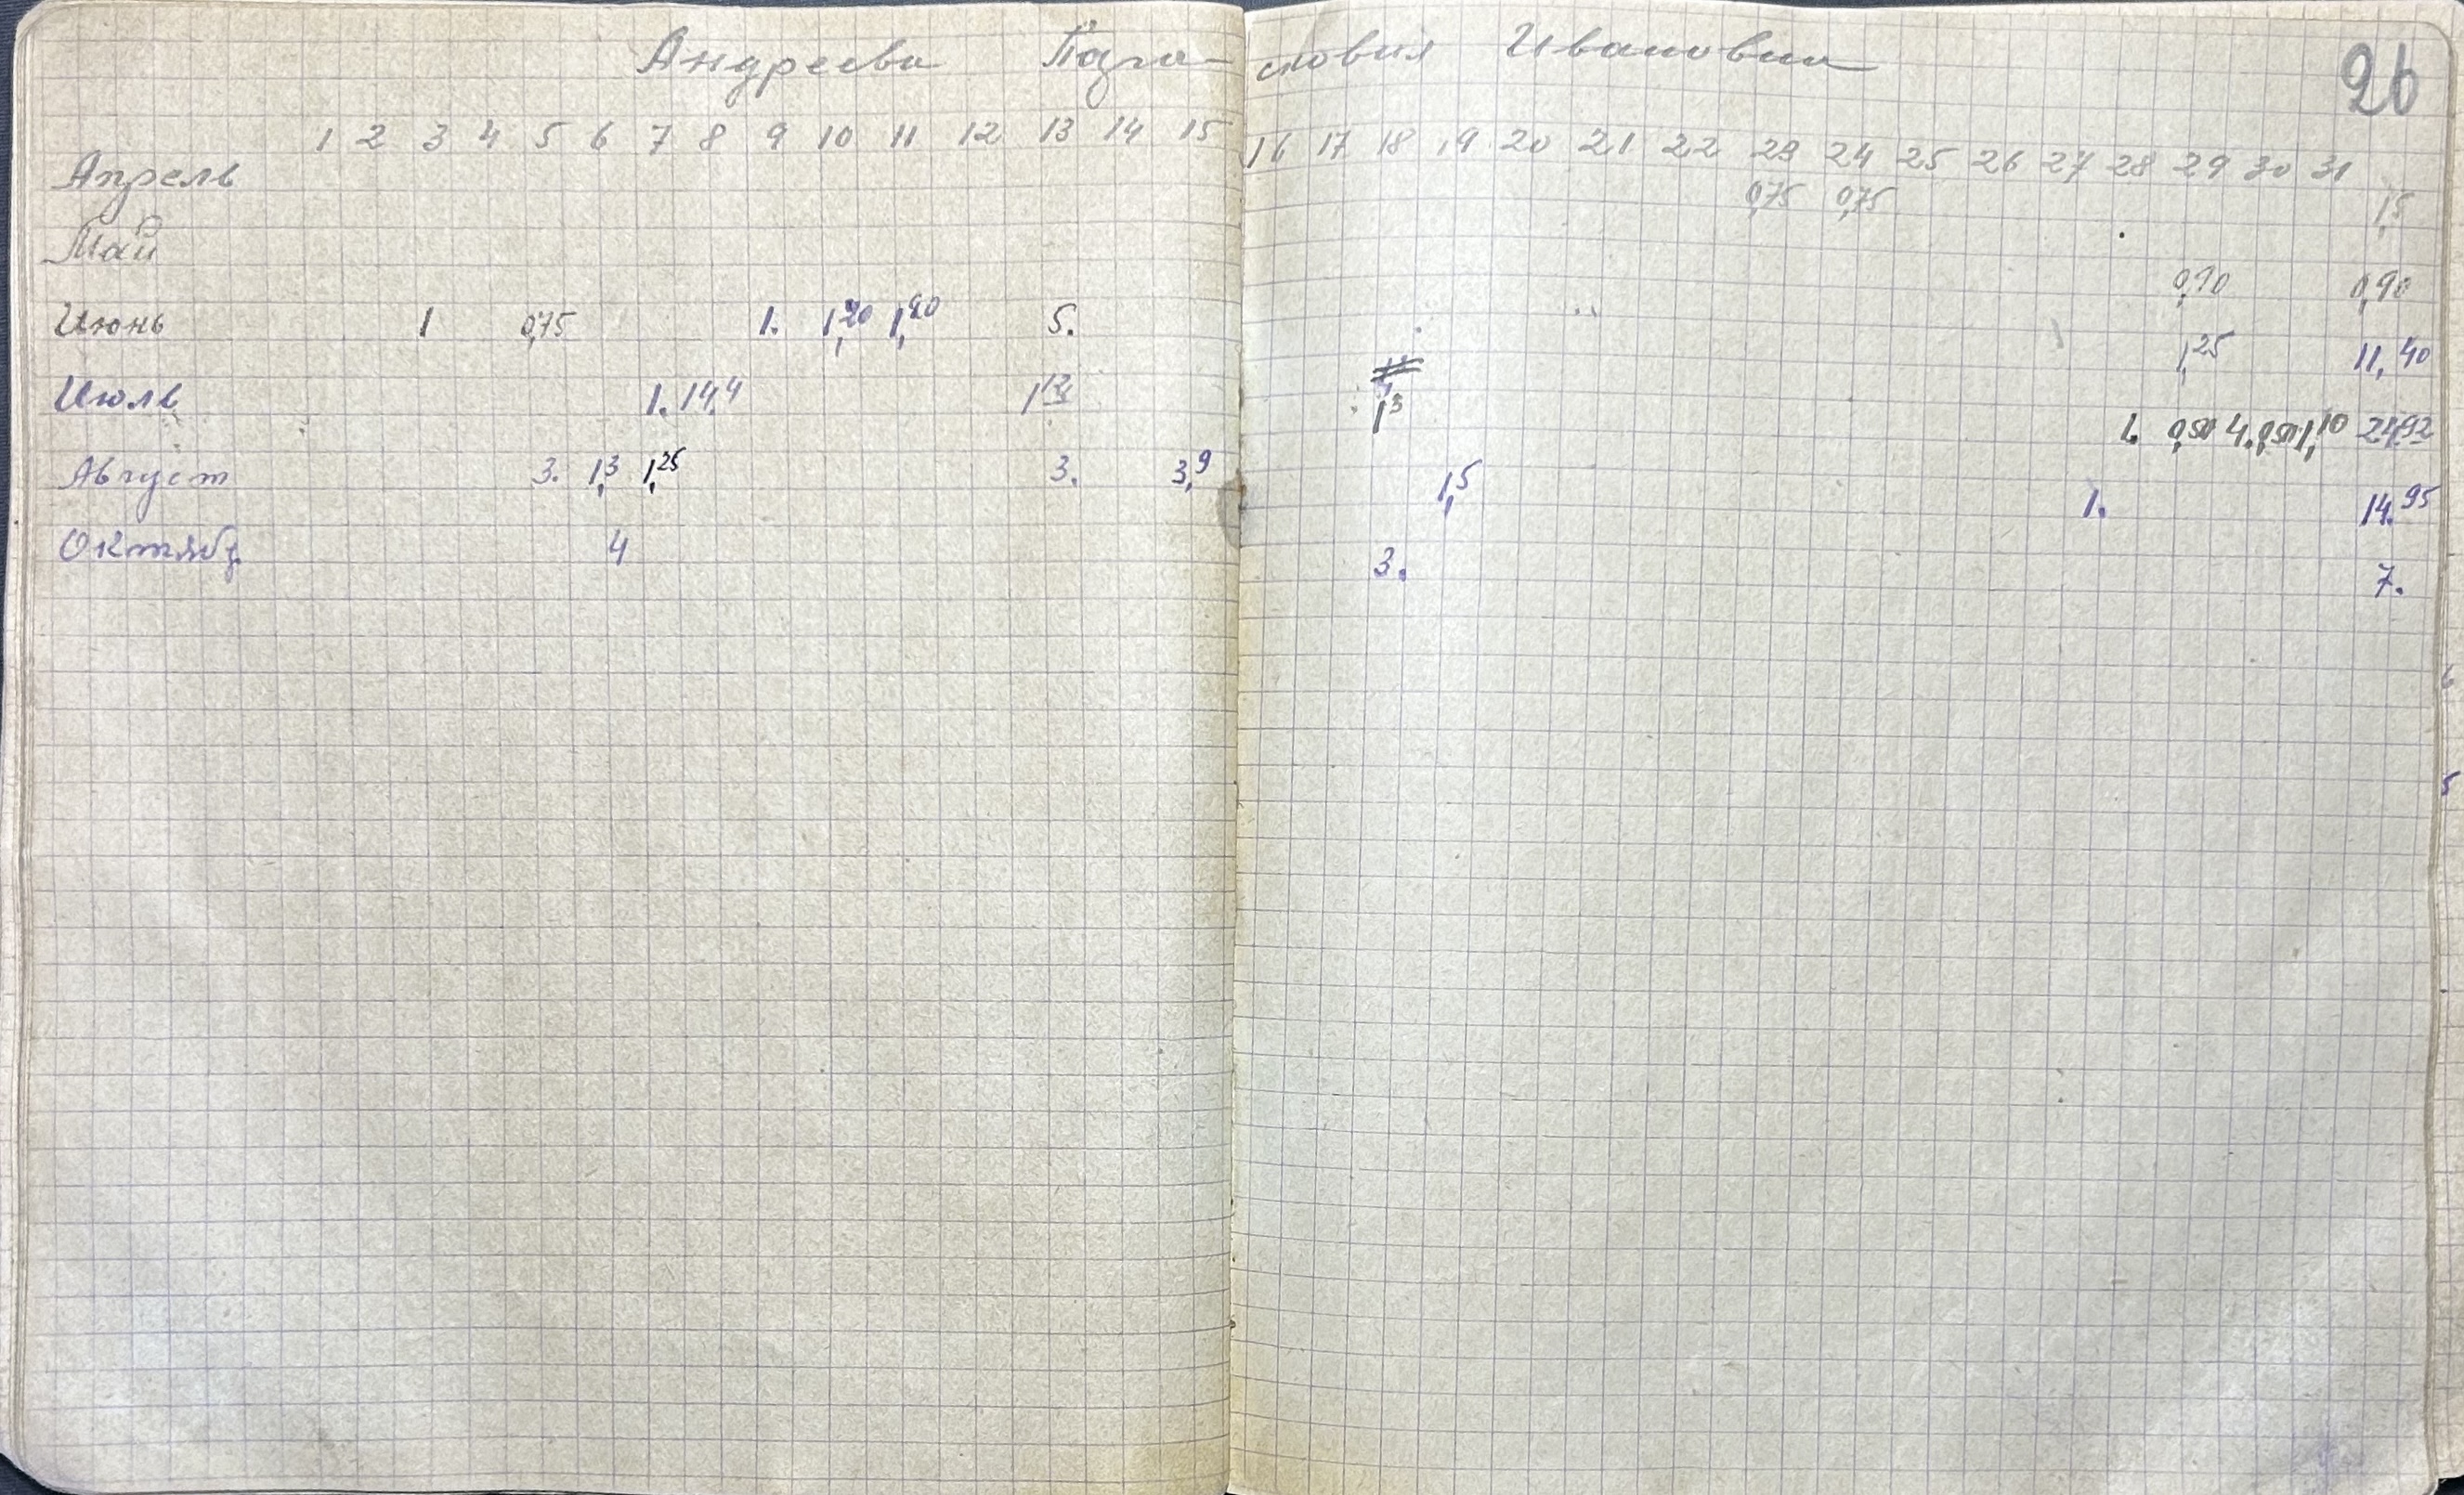 Андреева Ивановна
26
1 2 3 4 5 6 7 8 9 10 11 12 13 14 15 16 17 18 19 20 21 22 23 24 25 26 27 28 29 30 31
Апрель 0,75 0,75 1,5
Май 0,90 0,90
Июнь 1 0,75 1. 1,20 1,20 5. 1,25 11,40
Июль 1. 14,4 1,3 1. 4.
Август 3. 1,3 1,25 3. 3,9 1,5 1. 14.95
Октябр. 4 3. 7.